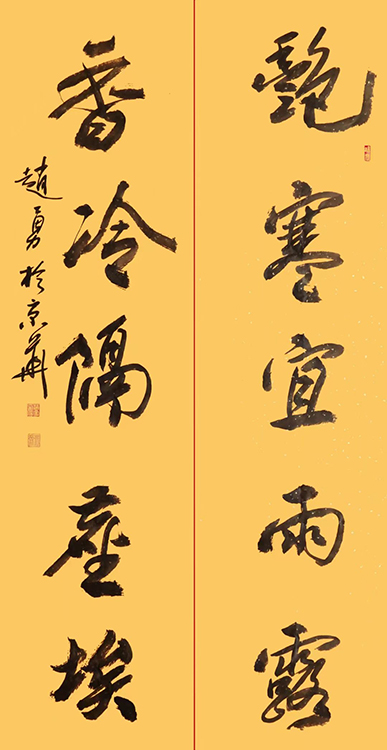 艷寒宜雨露
香冷隔塵埃
趙勇於京華